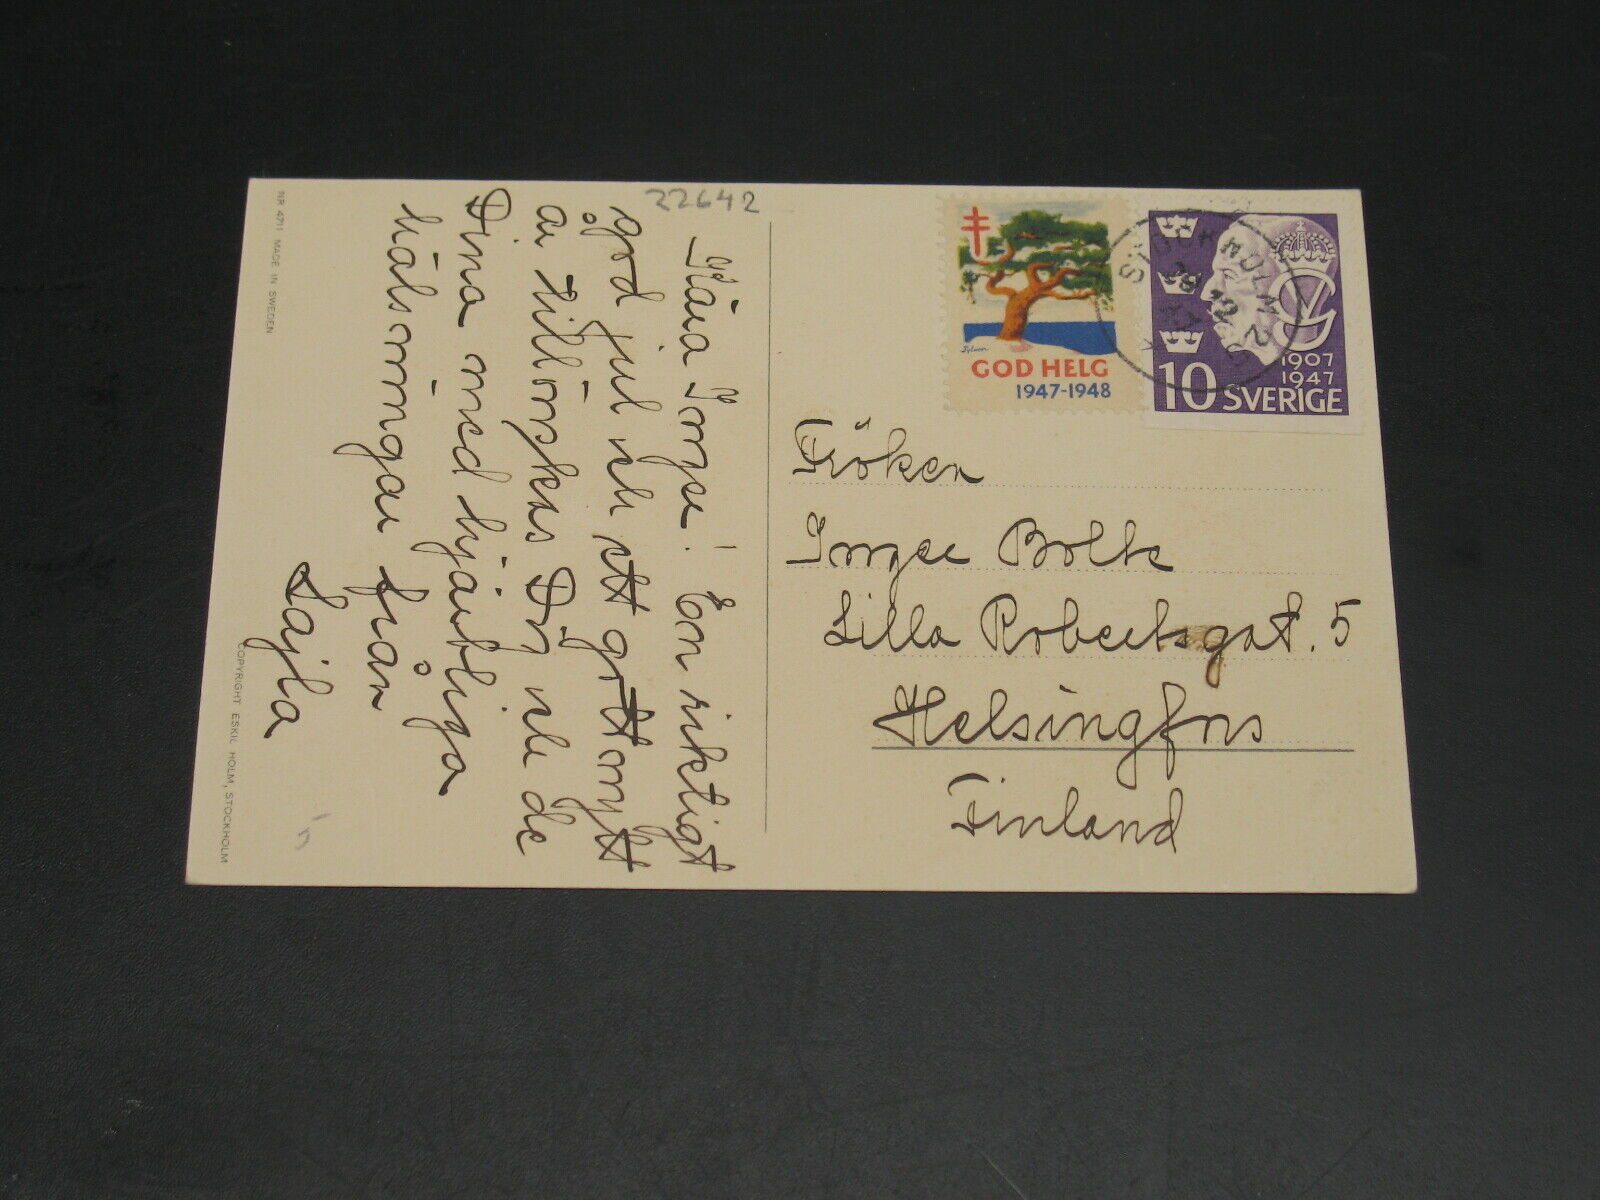 22642
Kära Inger! En riktigt
god jul och ett gott nytt
år tillönskas Dig och de
Dina med hjärtliga
hälsningar från
Lajla
NR 4711 MADE IN SWEDEN
COPYRIGHT ESKIL HOLM, STOCKHOLM
GOD HELG
1947-1948
STOCKHOLM
1907
1947
10 SVERIGE
Fröken
Lilla Robertsgat. 5
Helsingfors
Finland